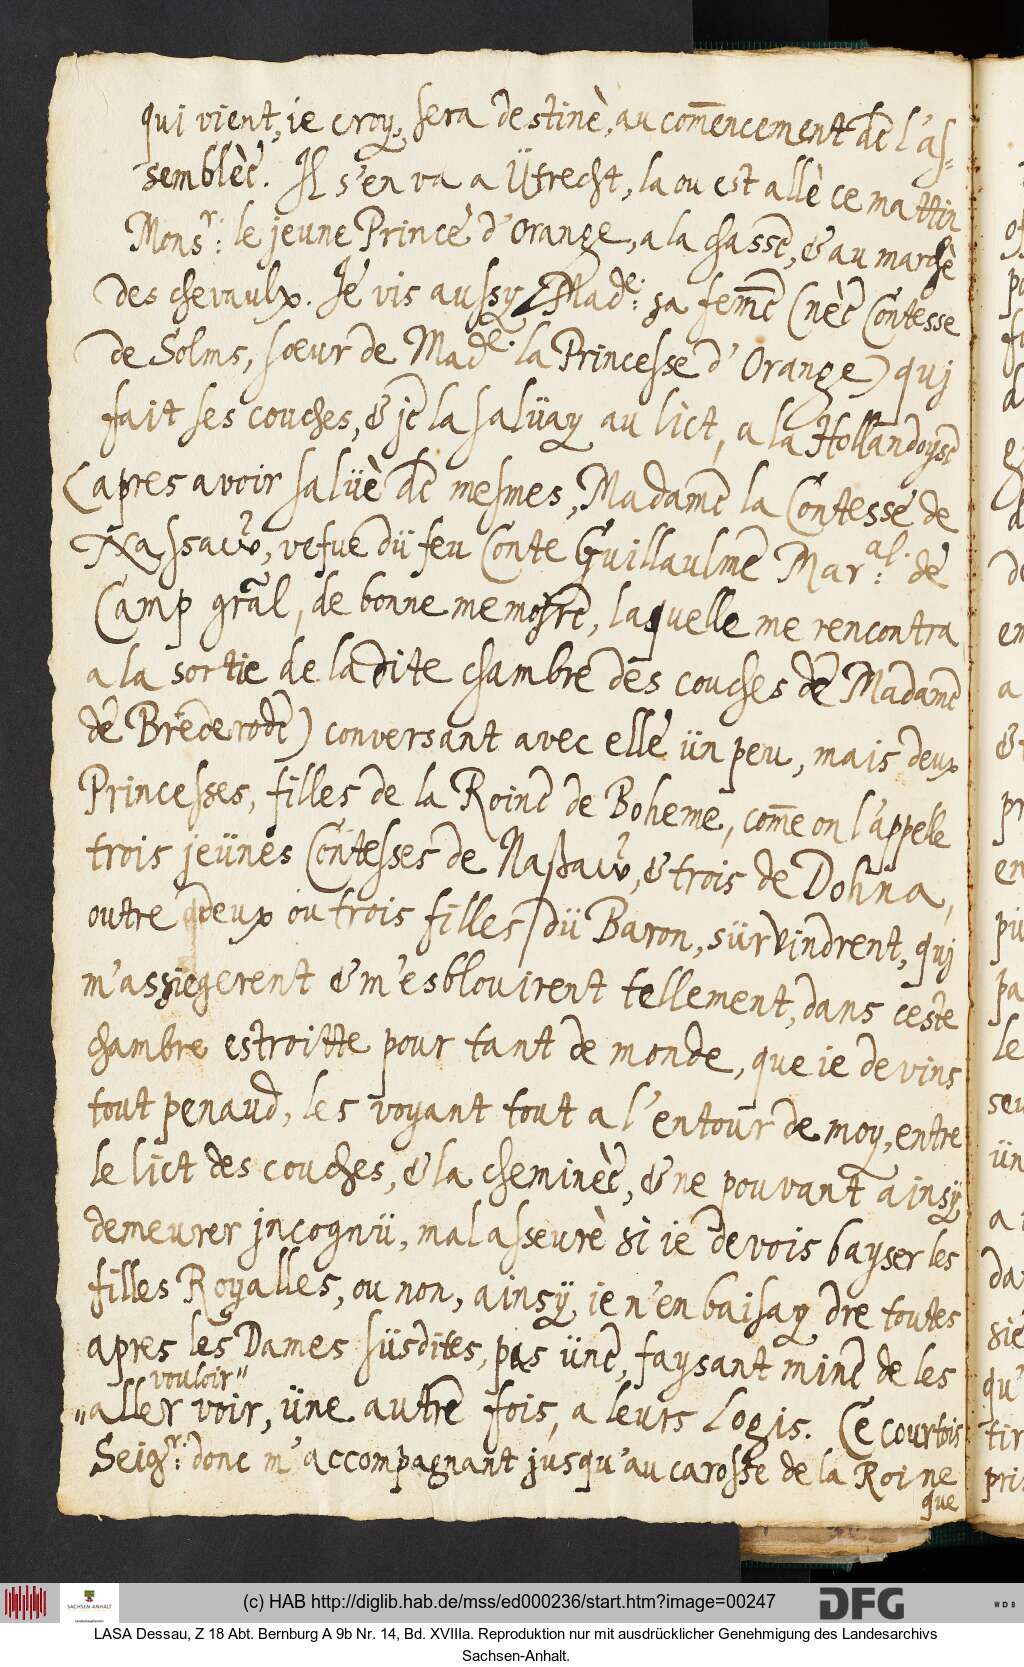 qui vient, ie croy, sera destinè, au com̅encement de l'as-
semblèe. Il s'en va a Ütrecht, la ou est allè ce mattin
Mons^r: le jeune Prince d'Orange, a la chasse, & au marchè
des chevaulx. Je vis aussy Mad^e: sa fem̅e (nèe Contesse
de Solms, sœur de Mad^e. la Princesse d'Orange) quj
fait ses couches, & je la salüay au lict, a la Hollandoyse
(apres avoir salüè de mesmes, Madame la Contesse de
Nassaw, vefue dü feu Conte Guillaulme Mar^al: de
Camp gr̃al, de bonne memojre, laquelle me rencontra
a la sortie de ladite chambre des couches de Madame
de Brederode) conversant avec elle ün peu, mais deux
Princesses, filles de la Roine de Boheme, com̅e on l'appelle
trois jeünes Contesses de Naßaw, & trois de Dohna,
outre deux ou trois filles dü Baron, sürvindrent, quj
m'assiegerent & m'esblouirent tellement, dans ceste
chambre estroitte pour tant de monde, que ie devins
tout penaud, les voyant tout a l'entour de moy, entre
le lict des couches, & la cheminèe, & ne pouvant ainsy
demeurer jncognü, mal asseurè si ie devois bayser les
filles Royalles, ou non, ainsy, ie n'en baisay dre toutes
apres les Dames süsdites, pas üne, faysant mine de les
vouloir"
"aller voir, üne autre fois, a leurs logis. Ce courtois
Seig^r: donc m'accompagnant jusqu'au carosse de la Roine
que
(c) HAB http://diglib.hab.de/mss/ed000236/start.htm?image=00247
SACHSEN-ANHALT
DFG
WDB
LASA Dessau, Z 18 Abt. Bernburg A 9b Nr. 14, Bd. XVIIIa. Reproduktion nur mit ausdrücklicher Genehmigung des Landesarchivs
Sachsen-Anhalt.